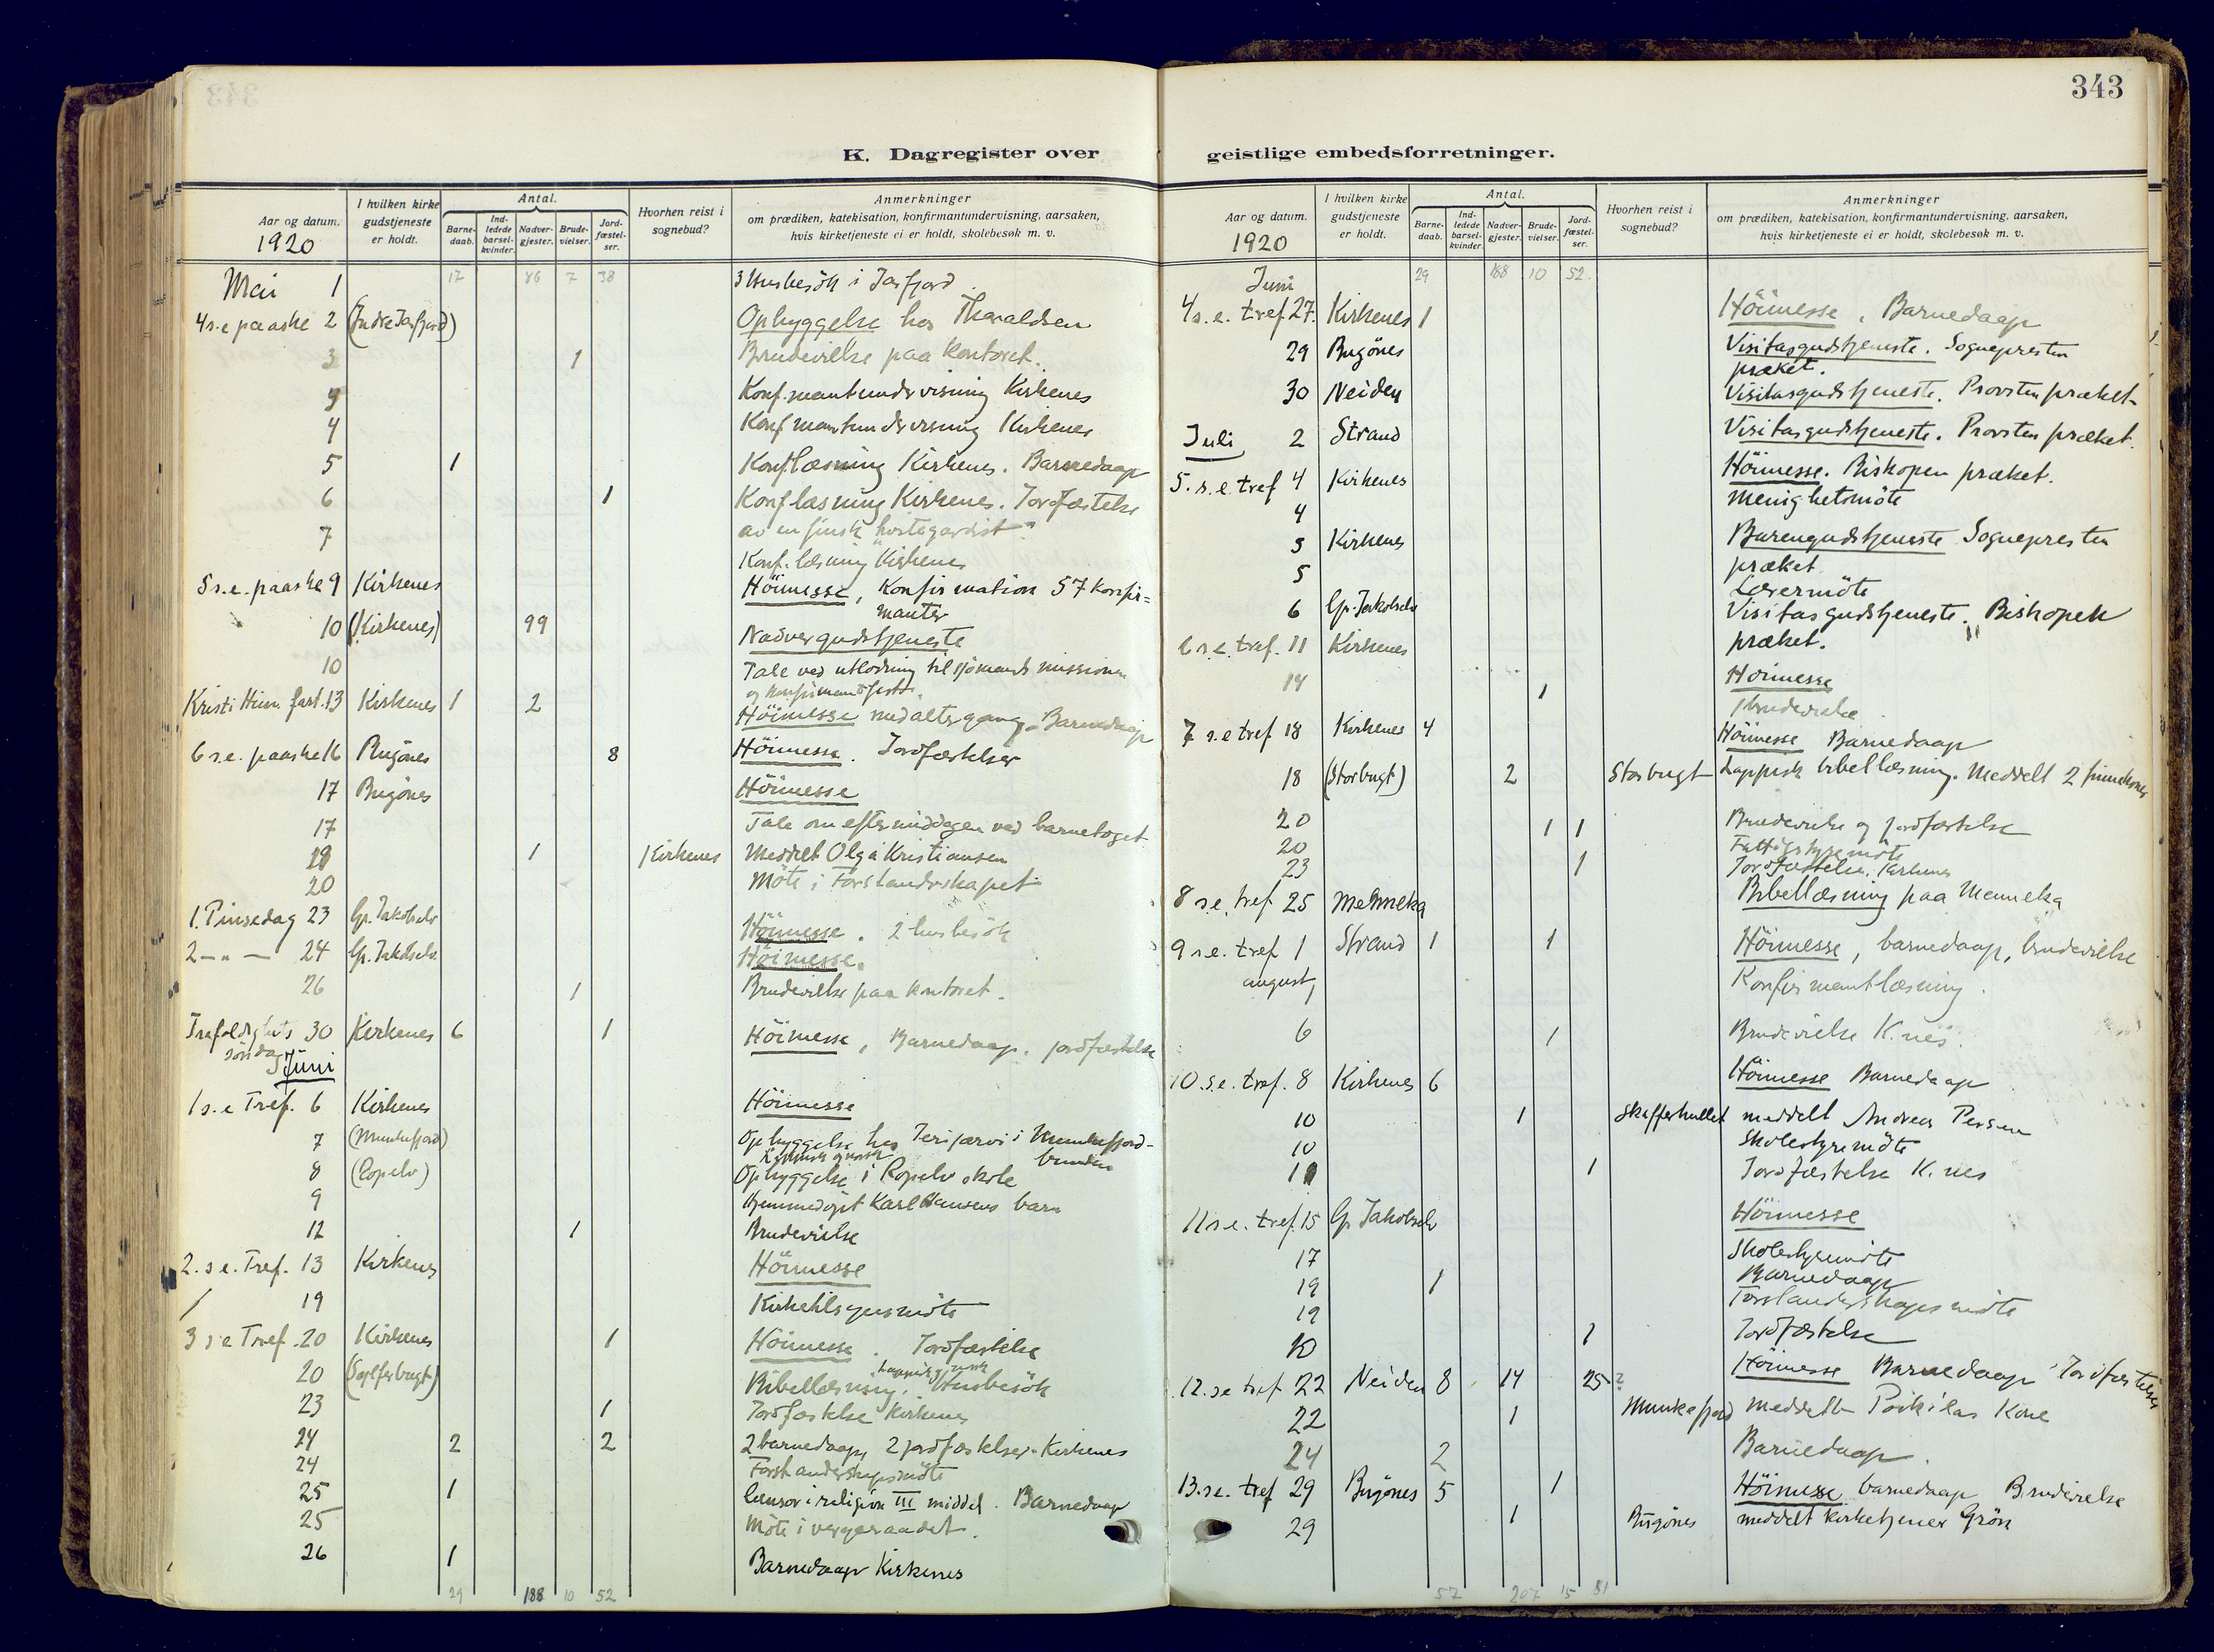 343
K. Dagregister over
geistlige embedsforretninger.
Aar og datum.
1920
I hvilken kirke gudstjeneste er holdt.
Antal.
Barne-daab.
Ind-ledede barsel-kvinder.
Nadver-gjester.
Brude-vielser.
Jord-fæstel-ser.
Hvorhen reist i sognebud?
Anmerkninger
om prædiken, katekisation, konfirmantundervisning, aarsaken,
hvis kirketjeneste ei er holdt, skolebesøk m. v.
17 86 7 38
Mai 1 3 Husbesök i Jarfjord
4 s.e paaske 2 (Indre Jarfjord) Opbyggelse hos Tharaldsen
3 1 Brudevielse paa Kontoret.
3 Konf.mantundervisning Kirkenes
4 Konfmantundervisning Kirkenes
5 1 Konf.læsning Kirkenes. Barnedaap
6 1 Konflæsning Kirkenes. Jordfæstelse
av en finsk
7 Konf. læsning Kirkenes
5 s.e. paaske 9 Kirkenes Höimesse, Konfirmation 57 konfir=
manter
10 (Kirkenes) 99 Nadvergudstjeneste
10 Tale ved utlodning til sjömandsmissionen
og konfirmantfest.
Kristi Him. fart. 13 Kirkenes 1 2 Höimesse med altergang. Barnedaap
6 s.e. paaske 16 Bugönes 8 Höimesse. Jordfæstelser
17 Bugönes Höimesse
17 Tale om eftermiddagen ved barnetoget
19 1 Kirkenes Meddelt Olga Kristiansen
20 Möte i Forstanderskapet
1. Pinsedag 23 Gr. Jakobselv Höimesse. 2 husbesök
2 — " — 24 Gr. Jakobselv Höimesse.
26 1 Brudevielse paa kontoret.
Trefoldighets 30 Kirkenes 6 1 Höimesse, Barnedaap. jordfæstelse
söndag
Juni
1 s.e Tref. 6 Kirkenes Höimesse
7 (Munkefjord) Opbyggelse hos Terijærvi i Munkefjord-
bunden
8 (Ropelv) Opbyggelse i Ropelv skole
9 Hjemmedöpt Karl Hansens barn
12 1 Brudevielse
2. s.e. Tref. 13 Kirkenes Höimesse
19 Kirketilsynsmöte
3 s e Tref. 20 Kirkenes 1 Höimesse. Jordfæstelse
20 Bibellæsning. Husbesök
23 1 Jordfæstelse Kirkenes
24 2 2 2 barnedaap, 2 jordfæstelser. Kirkenes
24 Forstanderskapsmöte
25 1 Censor i religion III middel. Barnedaap
25 Möte i vergeraadet.
26 1 Barnedaap Kirkenes
29 188 10 52
Aar og datum.
1920
I hvilken kirke gudstjeneste er holdt.
Antal.
Barne-daab.
Ind-ledede barsel-kvinder.
Nadver-gjester.
Brude-vielser.
Jord-fæstel-ser.
Hvorhen reist i sognebud?
Anmerkninger
om prædiken, katekisation, konfirmantundervisning, aarsaken,
hvis kirketjeneste ei er holdt, skolebesøk m. v.
Juni 29 188 10 52
4 s.e. tref 27. Kirkenes 1 Höimesse, Barnedaap
29 Bugönes Visitasgudstjeneste. Sognepresten
præket.
30 Neiden Visitasgudstjeneste. Provsten præket
Juli 2 Strand Visitasgudstjeneste. Provsten præket.
5. s.e. tref 4 Kirkenes Höimesse. Biskopen præket.
4 Menighetsmöte
5 Kirkenes Barnegudstjeneste Sognepresten
præket
5 Lærermöte
6 Gr. Jakobselv Visitasgudstjeneste. Biskopen
præket.
6 s.e. tref. 11 Kirkenes Höimesse
14 1 brudevielse
7 s.e tref 18 Kirkenes 4 Höimesse Barnedaap
18 (Storbugt) 2 Storbugt Lappisk bibellæsning. Meddelt 2 finnekoner
20 1 1 Brudevielse og jordfæstelse
20 Fattigstyremöte
23 1 Jordfæstelse. Kirkenes
8 s.e. tref 25 Mennika Bibellæsning paa Mennika
9 s.e. tref 1 Strand 1 1 Höimesse, barnedaap, brudevielse
august Konfirmantlæsning.
6 1 Brudevielse K.nes.
10. s.e. tref. 8 Kirkenes 6 Höimesse Barnedaap
10 1 Skafferhullet meddelt Andreas Persen
10 Skolestyremöte
11 1 Jordfæstelse K. nes
11 s.e. tref. 15 Gr Jakobselv Höimesse
17 Skolestyremöte
19 1 Barnedaap
19 Forstanderskapsmöte
20 1 Jordfæstelse
12. s.e tref 22 Neiden 8 14 25 Höimesse Barnedaap Jordfæstelse
22 1 Munkefjord meddelt Kone
24 2 Barnedaap.
13. s.e. tref 29 Bugönes 5 1 Höimesse, barnedaap Brudevielse
29 1 Bugönes meddelt kirketjener Grön
57 207 15 81